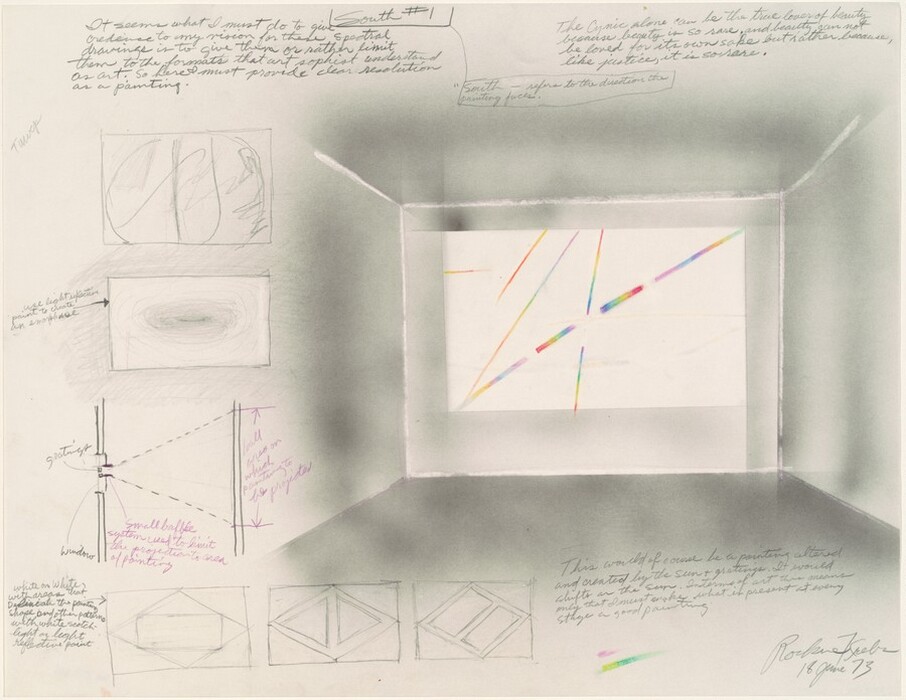 South #1
It seems what I must do to give
credense to my vision for these spectral
drawings is to give them or rather limit
them to the formats that art sophist understand
as art. So here I must provide clear resolution
as a painting.
The Cynic alone can be the true lover of beauty
because beauty is so rare, and beauty can not
be loved for its own sake but rather because,
like justice, it is so rare.
"South — refers to the direction the
painting faces.
use light reflective
paint to create
gratings
window
small baffle
system used to limit
the projection to area
of painting
wall
area on
which
painting to
be projected
white on white
with areas that
the painting
shape and other patterns
with white scotch-
light or light
reflective paint
This would of course be a painting altered
and created by the sun & gratings. It would
shift as the sun. In terms of art this means
only that I must make what is present at every
stage a good painting
Rockne Krebs
18 June 73